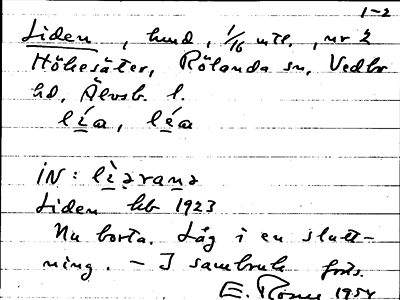 1-2
Liden, hmd, 1/16 mtl., nr 2
Hökesäter, Rölanda sn, Vedbo
hd, Älvsb. l.
lía, léa
iN: lìərana
Liden hb 1923
Nu borta. Låg i en slutt-
ning. – I sambruk forts.
E. Rosen 1954